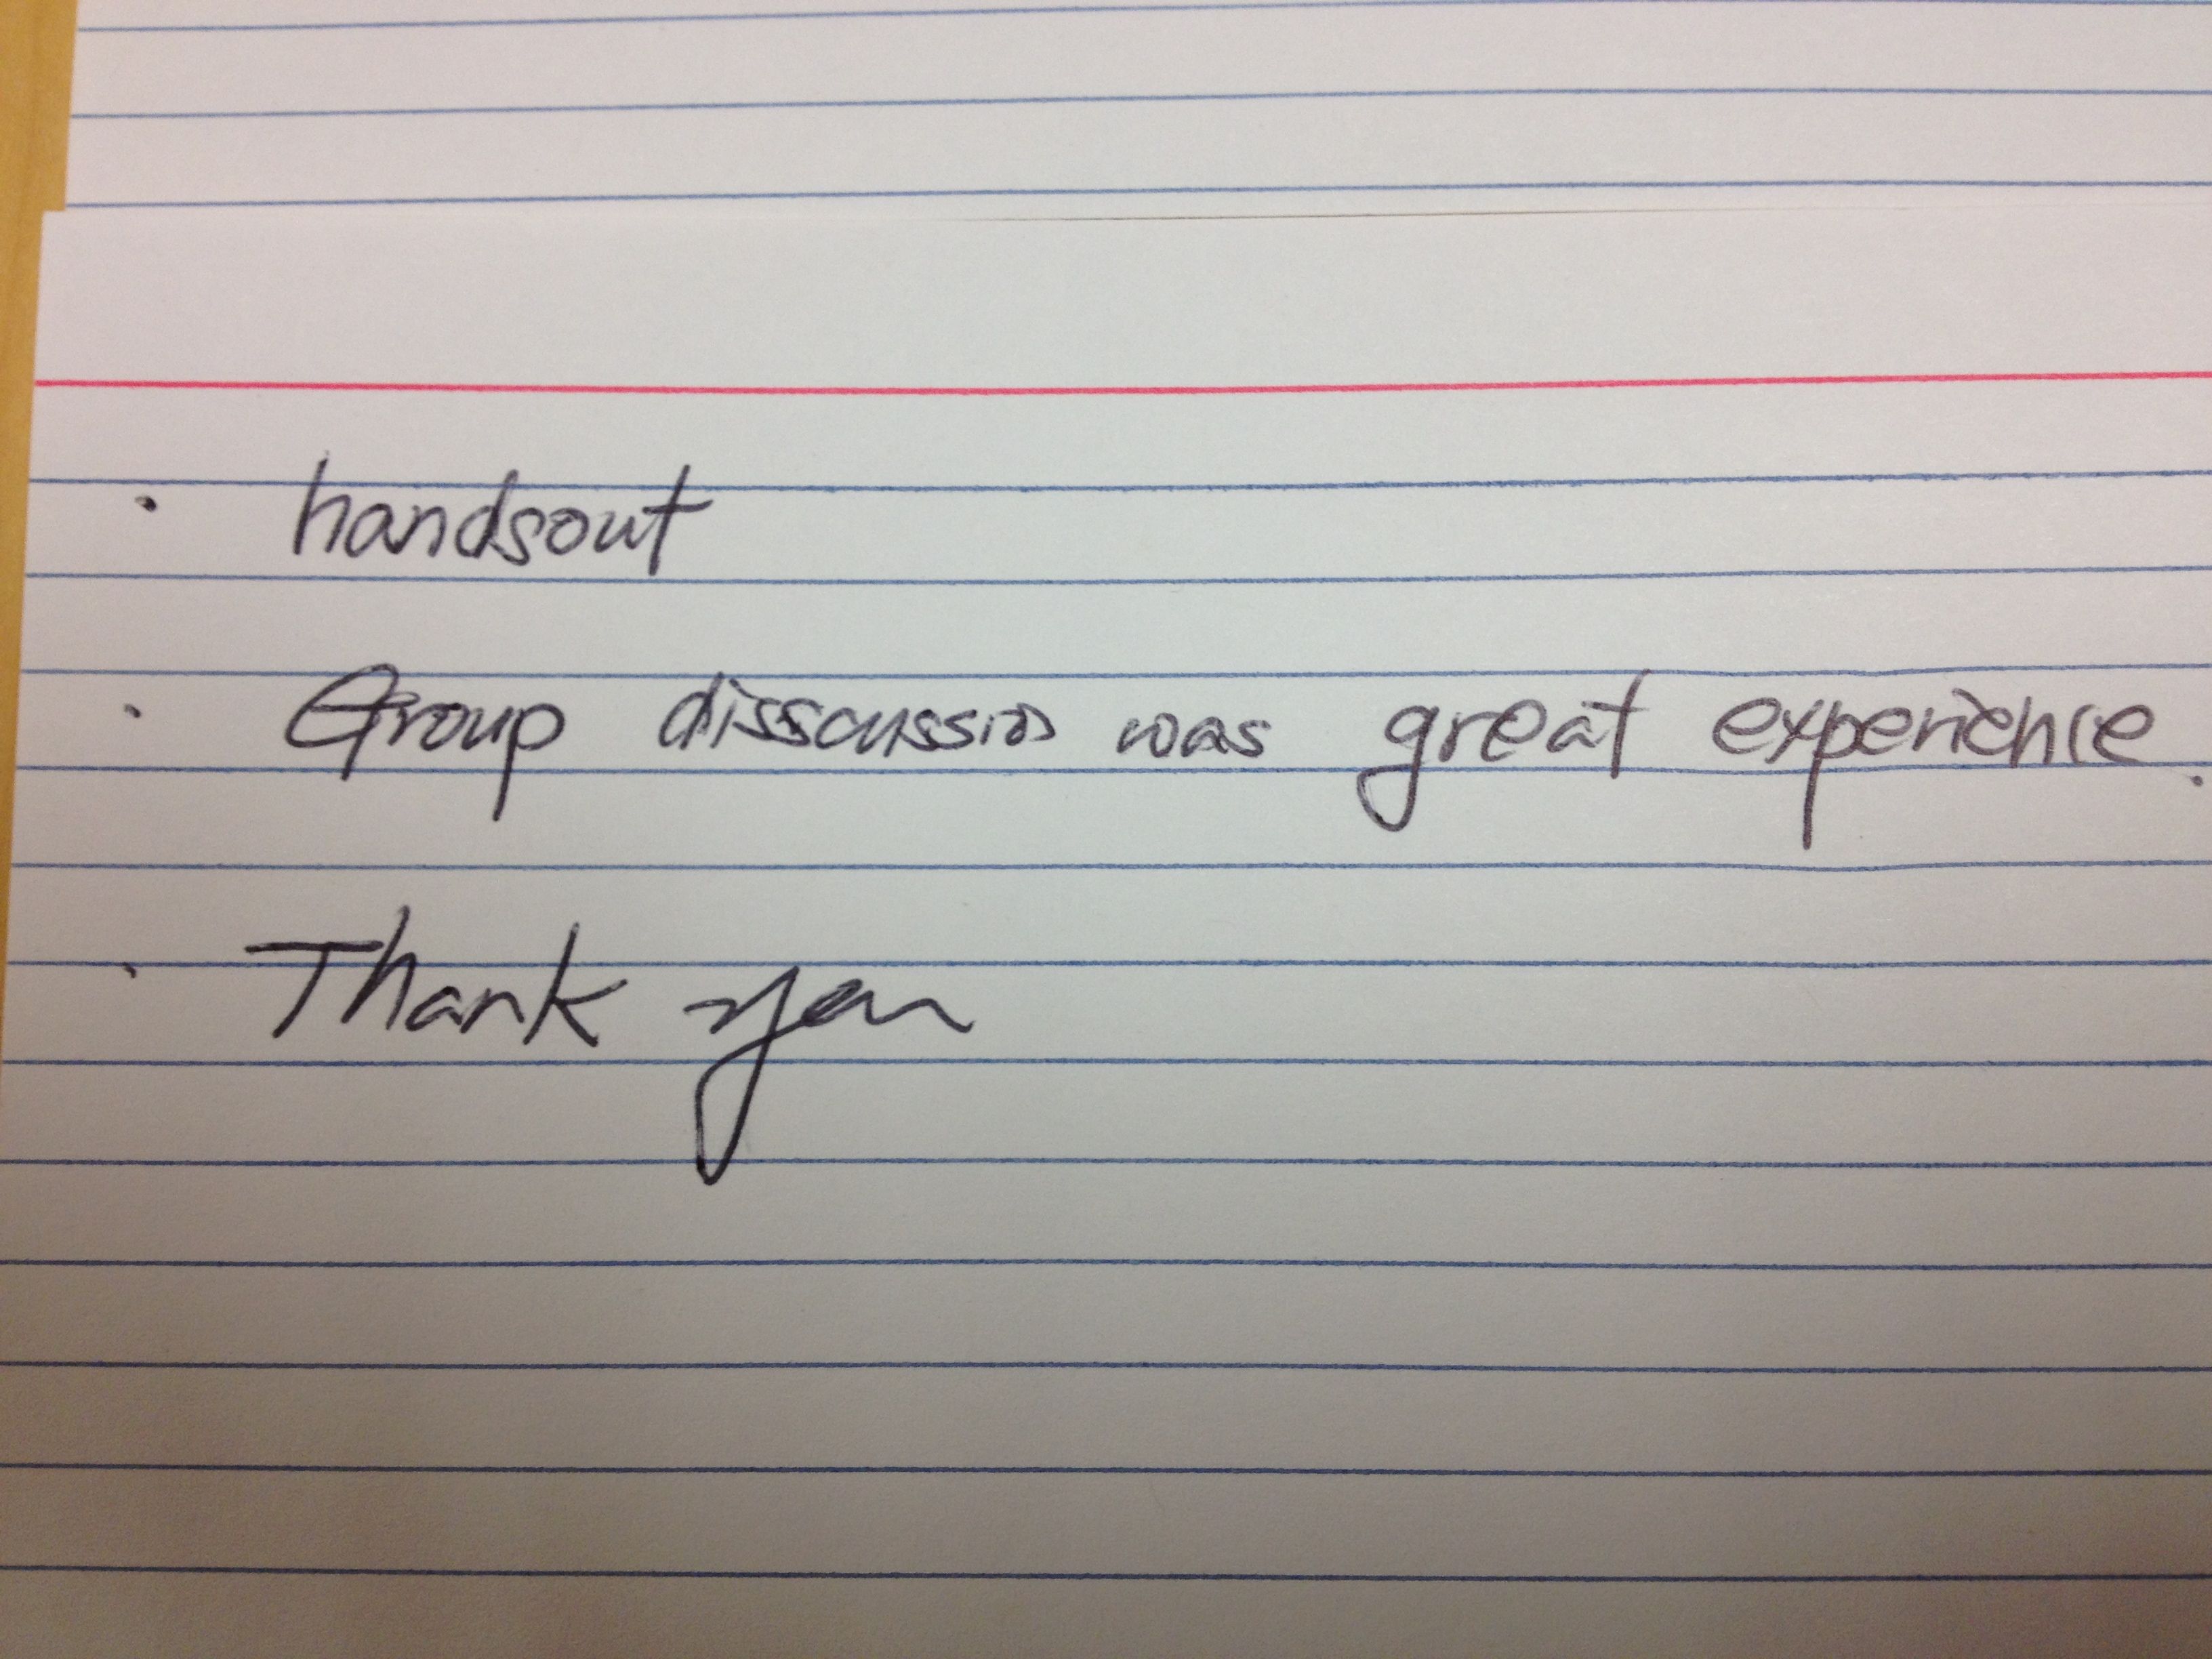 · handsout
· Group disscussion was great experience.
· Thank you